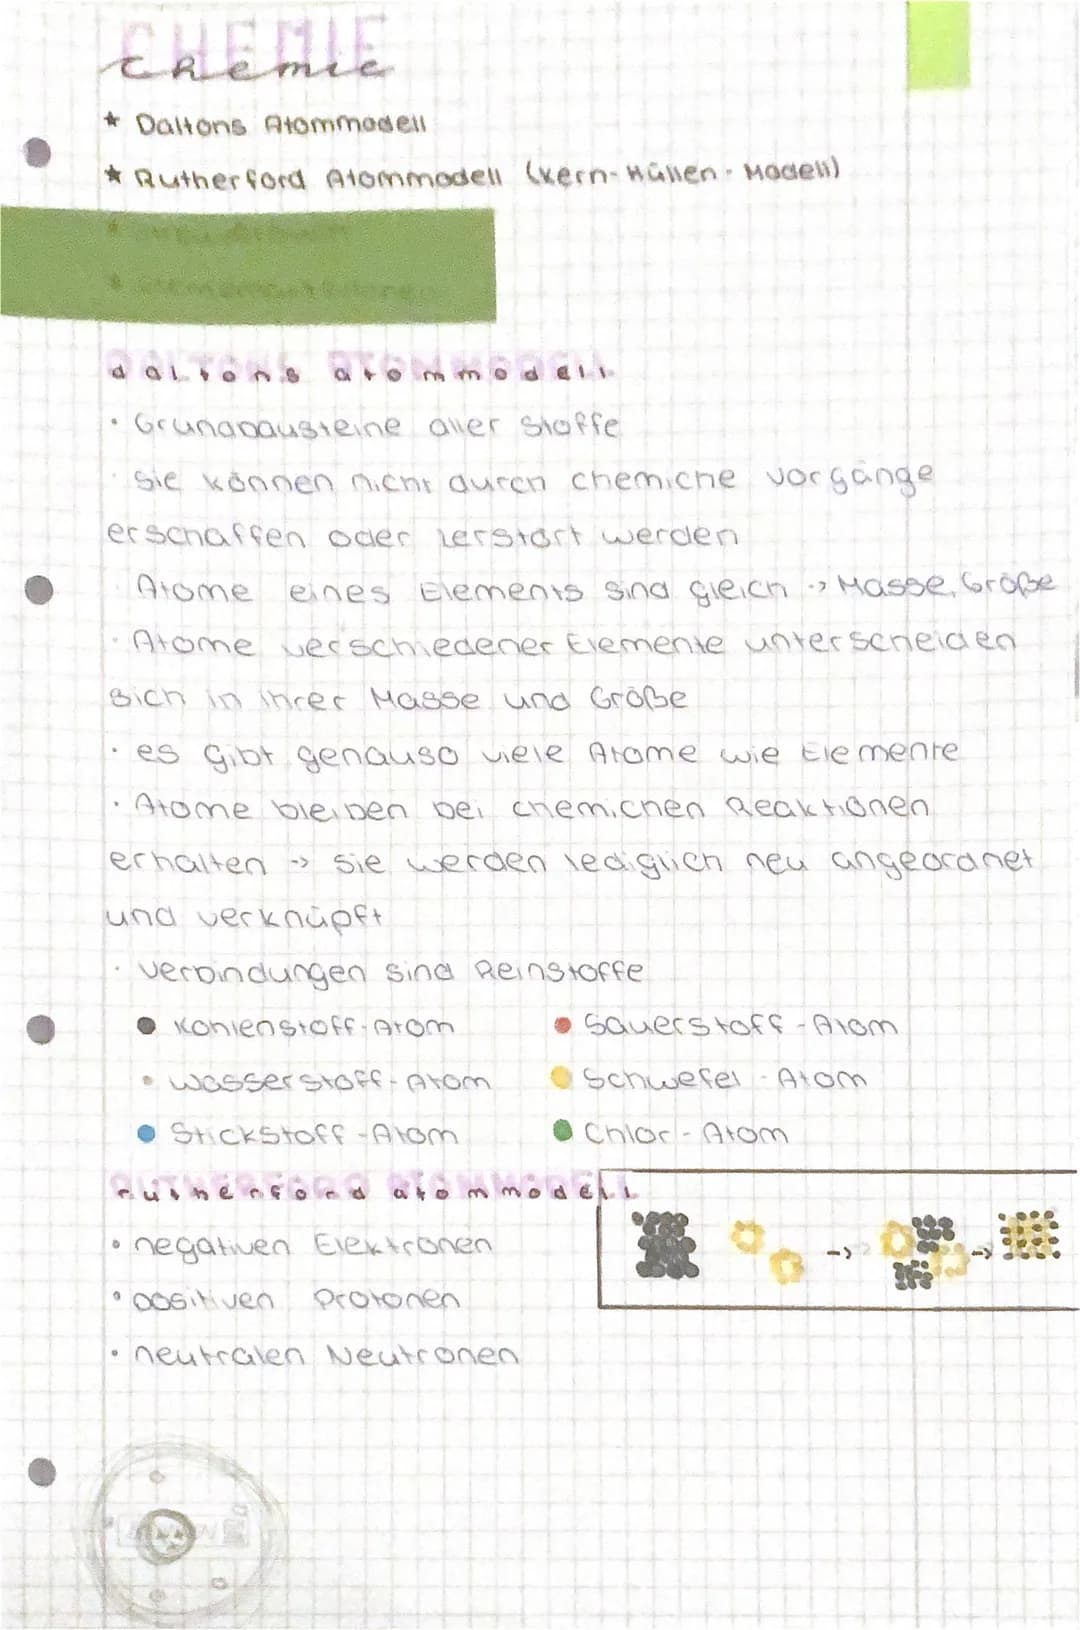 CHEMIE
Chemie
* Daltons Atommodell
* Rutherford Atommodell (Kern-Hüllen-Modell)
daltons atommodell
· Grundbausteine aller Stoffe
· sie können nicht durch chemiche Vorgänge
erschaffen oder zerstört werden
· Atome eines Elements sind gleich -> Masse, Größe
· Atome verschiedener Elemente unterscheiden
sich in ihrer Masse und Größe
· es gibt genauso viele Atome wie Elemente
· Atome bleiben bei chemichen Reaktionen
erhalten -> sie werden lediglich neu angeordnet
und verknüpft
· Verbindungen sind Reinstoffe
Kohlenstoff-Atom Sauerstoff-Atom
Wasserstoff-Atom Schwefel-Atom
Stickstoff-Atom Chlor-Atom
rutherford atommodell
· negativen Elektronen
· positiven Protonen
· neutralen Neutronen